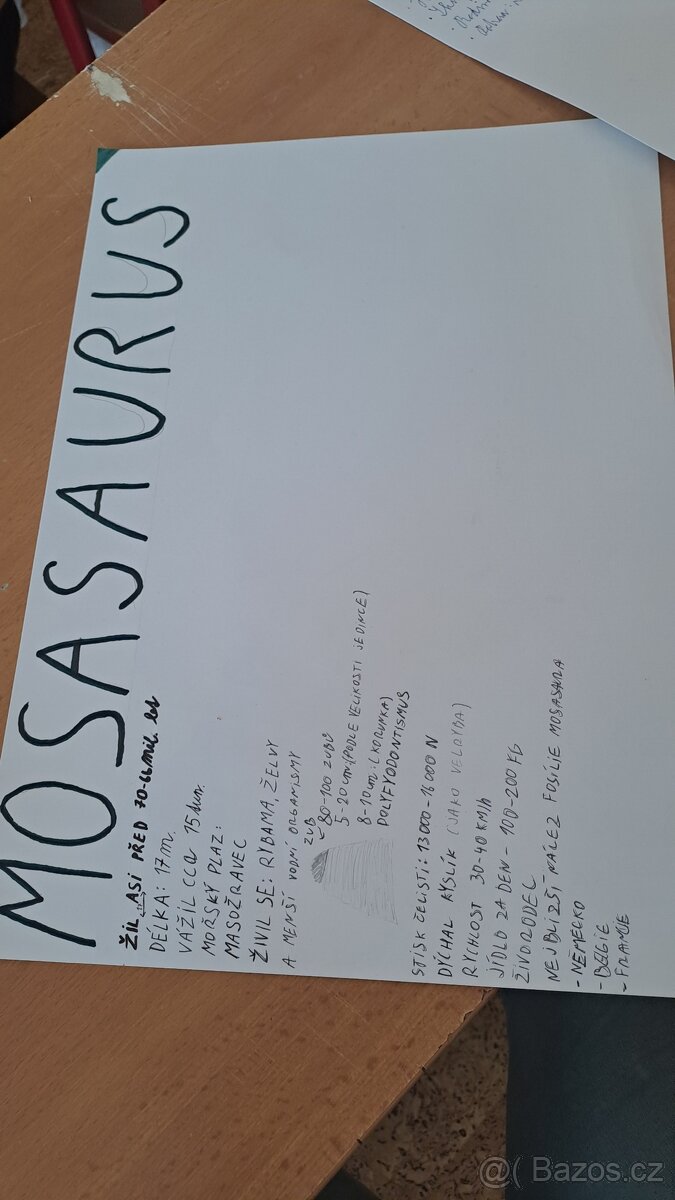 MOSASAURUS
ŽIL ASI PŘED 70-66 mil. let
DÉLKA: 17 m.
VÁŽIL CCA 15 tun.
MOŘSKÝ PLAZ:
MASOŽRAVEC
ŽIVIL SE: RYBAMA, ŽELVY
A MENŠÍ VODNÍ ORGANISMY
ZUB
80-100 ZUBŮ
5-20 cm: (PODLE VELIKOSTI JEDINCE)
8-10 cm: (KORUNKA)
POLYFYODONTISMUS
STISK ČELISTI: 13000-16000 N
DÝCHAL KYSLÍK (JAKO VELRYBA)
RYCHLOST 30-40 KM/h
JÍDLO ZA DEN - 100-200 KG
ŽIVORODEL
NEJBLIŽŠÍ NÁLEZ FOSÍLIE MOSASAURA
- NĚMECKO
- BELGIE
- FRANCIE
@( Bazos.cz